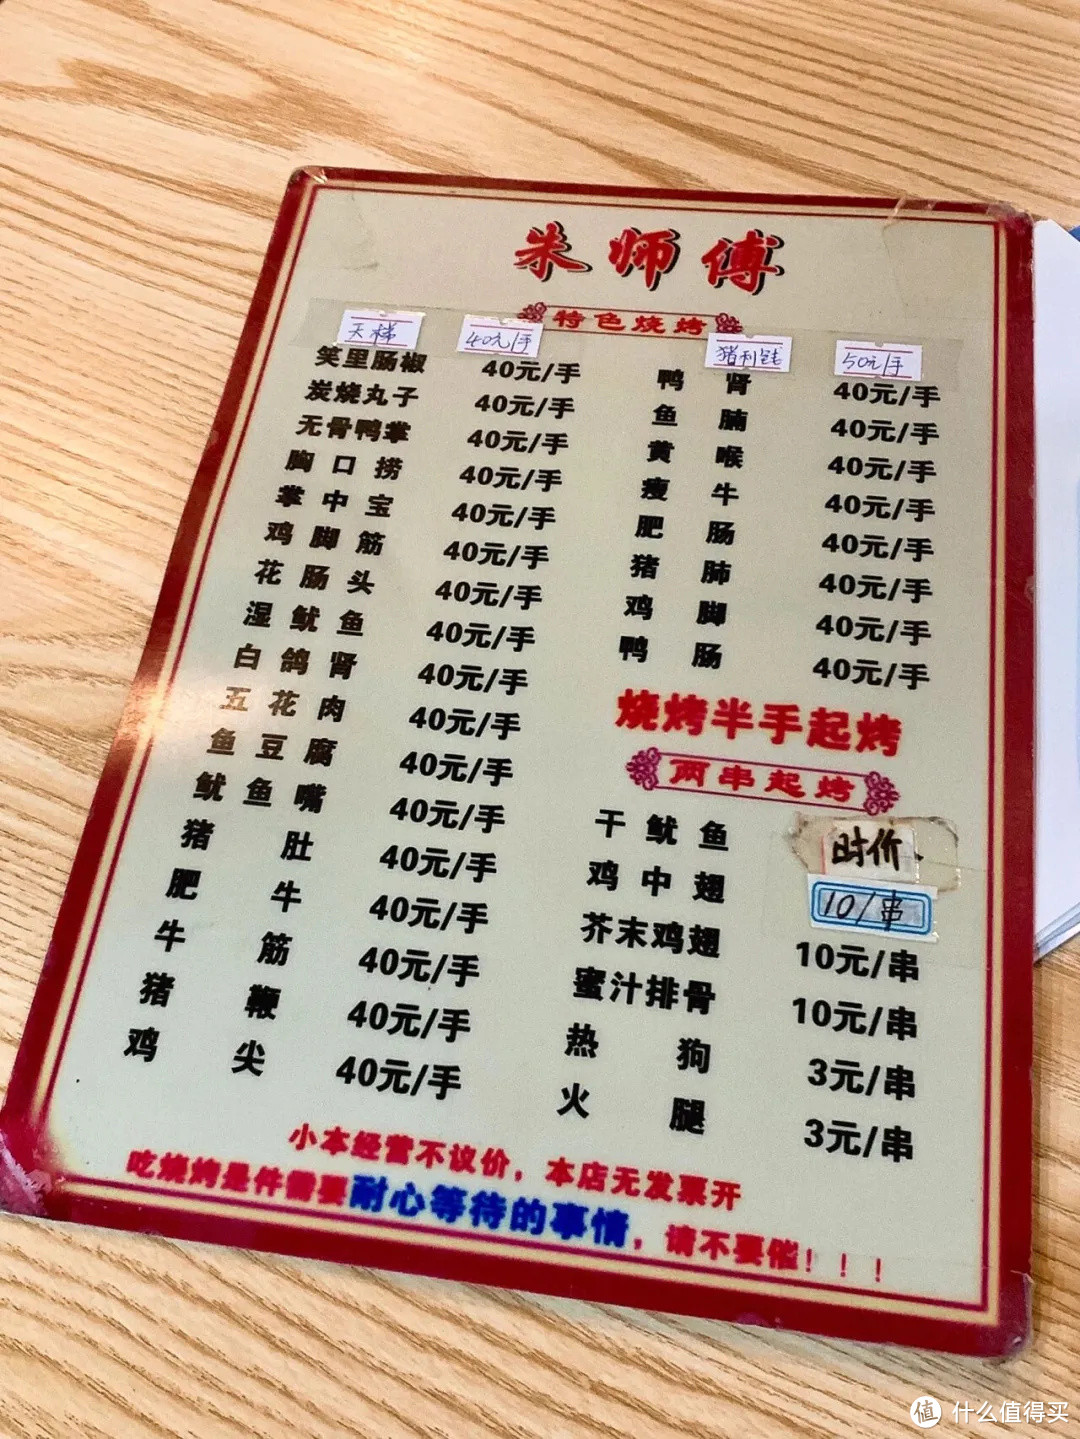 朱师傅
特色烧烤
天梯 40元/手 猪利钱 50元/手
笑里肠椒 40元/手 鸭肾 40元/手
炭烧丸子 40元/手 鱼腩 40元/手
无骨鸭掌 40元/手 黄喉 40元/手
胸口捞 40元/手 瘦牛 40元/手
掌中宝 40元/手 肥肠 40元/手
鸡脚筋 40元/手 猪肺 40元/手
花肠头 40元/手 鸡脚 40元/手
湿鱿鱼 40元/手 鸭肠 40元/手
白鸽肾 40元/手
五花肉 40元/手
鱼豆腐 40元/手
鱿鱼嘴 40元/手
猪肚 40元/手
肥牛 40元/手
牛筋 40元/手
猪鞭 40元/手
鸡尖 40元/手
烧烤半手起烤
两串起烤
干鱿鱼 时价
鸡中翅 10/串
芥末鸡翅 10元/串
蜜汁排骨 10元/串
热狗 3元/串
火腿 3元/串
小本经营不议价，本店无发票开
吃烧烤是件需要耐心等待的事情，请不要催！！！
值 什么值得买